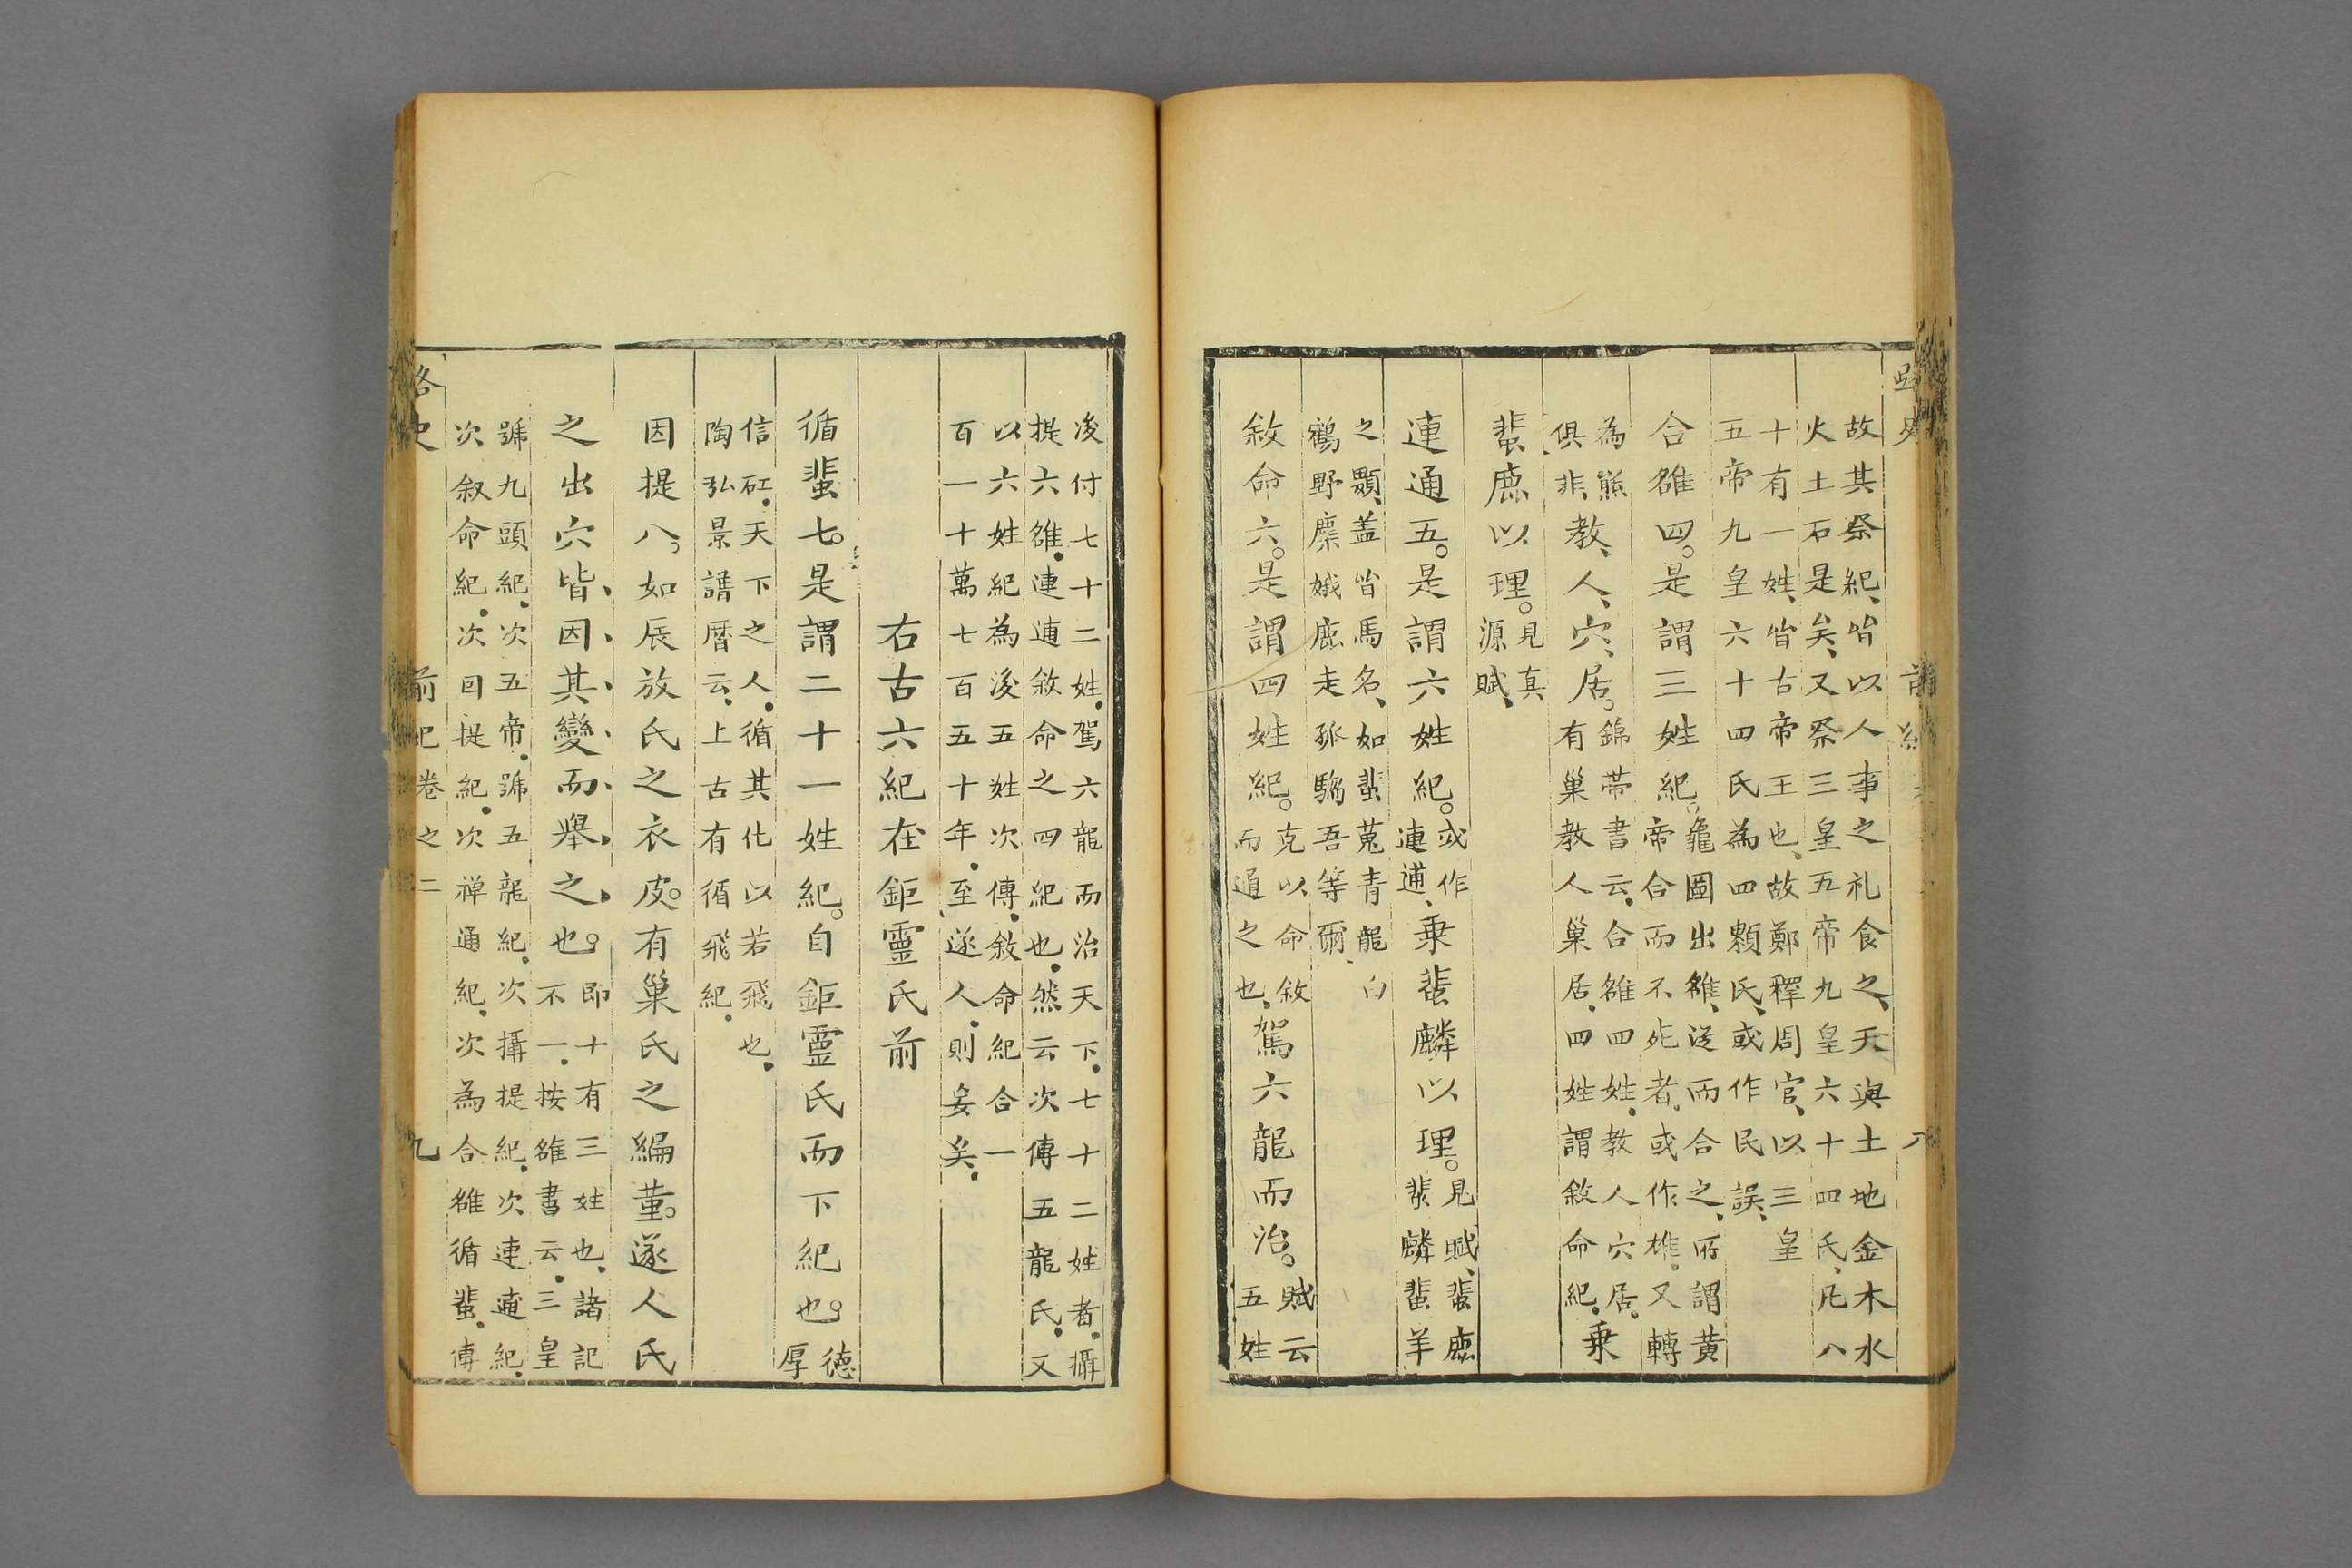 故其祭紀皆以人事之礼食之天與土地金木水
火土石是矣又祭三皇五帝九皇六十四氏凡八
十有一姓皆古帝王也故鄭釋周官以三皇
五帝九皇六十四氏為四類氏或作民誤
合雒四是謂三姓紀
龜圖出雒逆而合之所謂黄
帝合而不死者或作雄又轉
為熊
俱非
教人穴居
錦帶書云合雒四姓教人穴居
有巢教人巢居四姓謂敘命紀
乗
蜚鹿以理
見真
源賦
連通五是謂六姓紀
或作
連逋
乗蜚麟以理
見賦蜚鹿
蜚麟蜚羊
之顆蓋皆馬名如蜚菟青龍白
鶴野麋娥鹿走狐騶吾等爾
敘命六是謂四姓紀
克以命敘
而通之也
駕六龍而治
賦云
五姓
後付七十二姓駕六龍而治天下七十二姓者攝
提六雒連逋敘命之四紀也然云次傳五龍氏又
以六姓紀為後五姓次傳敘命紀合一
百一十萬七百五十年至遂人則妄矣
右古六紀在鉅靈氏前
循蜚七是謂二十一姓紀自鉅靈氏而下紀也
德
厚
信矼天下之人循其化以若飛也
陶弘景譜曆云上古有循飛紀
因提八如辰放氏之衣皮有巢氏之編菫遂人氏
之出穴皆因其變而舉之也
即十有三姓也諸記
不一按雒書云三皇
號九頭紀次五帝號五龍紀次攝提紀次連逋紀
次叙命紀次因提紀次禅通紀次為合雒循蜚傳
路史
前紀卷之二
九